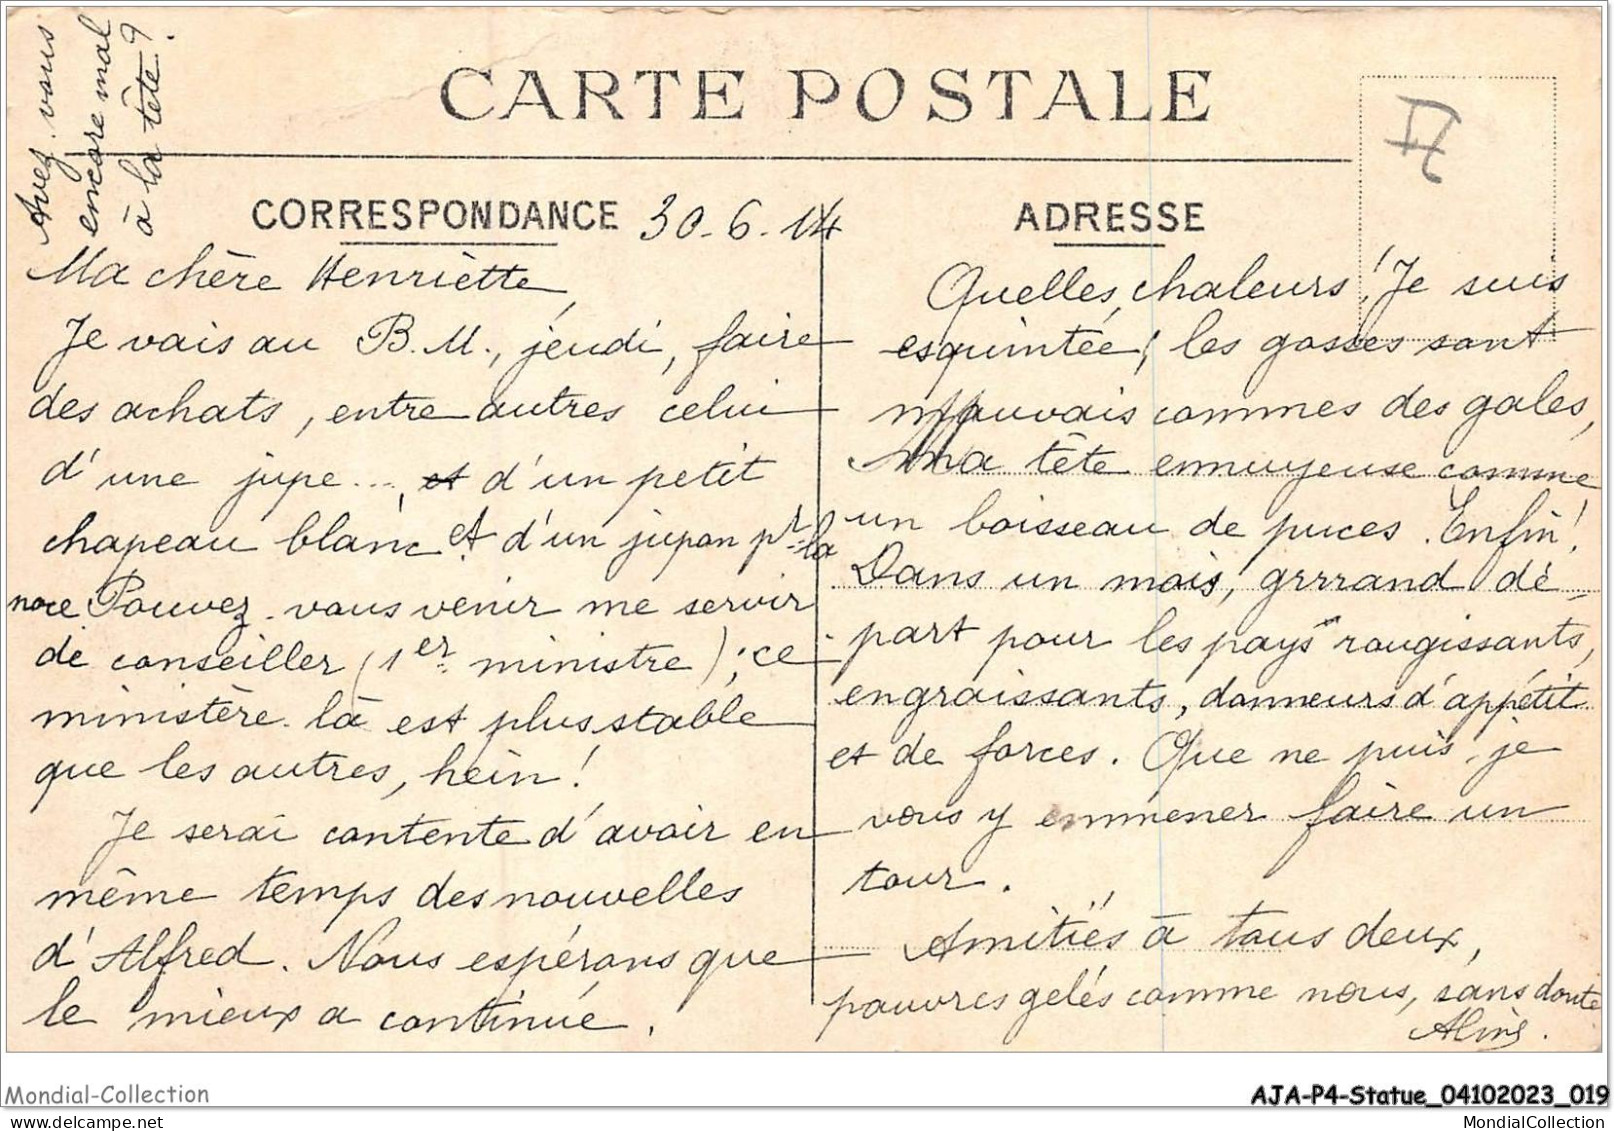 Avez-vous
encore mal
à la tête ?
CARTE POSTALE
CORRESPONDANCE 30-6-14
ADRESSE
Ma chère Henriette,
Je vais au B.M., jeudi, faire
des achats, entre autres celui
d'une jupe..., d'un petit
chapeau blanc et d'un jupon pr la
noce. Pouvez-vous venir me servir
de conseiller (1er ministre) ; ce
ministère-là est plus stable
que les autres, hein !
Je serai contente d'avoir en
même temps des nouvelles
d'Alfred. Nous espérons que
le mieux a continué.
Quelles chaleurs ! Je suis
esquintée ; les gosses sont
mauvais commes des gales,
ma tête ennuyeuse comme
un boisseau de puces. Enfin !
Dans un mois, grrrand dé-
part pour les pays rougissants,
engraissants, donneurs d'appétit
et de forces. Que ne puis-je
vous y emmener faire un
tour.
Amitiés à tous deux,
pauvres gelés comme nous, sans doute
Mondial-Collection
AJA-P4-Statue_04102023_019
MondialCollection